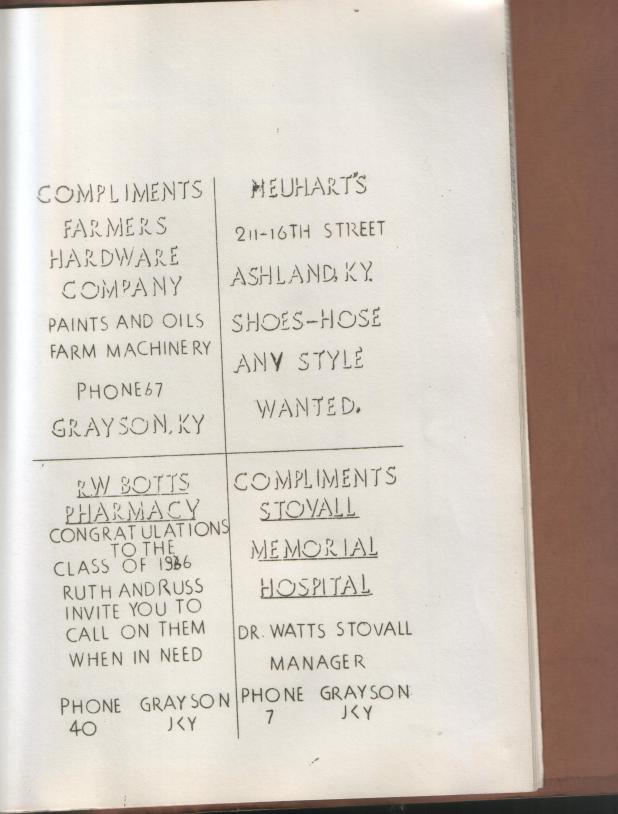 COMPLIMENTS
FARMERS
HARDWARE
COMPANY
PAINTS AND OILS
FARM MACHINERY
PHONE 67
GRAYSON, KY
NEUHART'S
211-16TH STREET
ASHLAND, KY.
SHOES-HOSE
ANY STYLE
WANTED.
R.W BOTTS
PHARMACY
CONGRATULATIONS
TO THE
CLASS OF 1936
RUTH AND RUSS
INVITE YOU TO
CALL ON THEM
WHEN IN NEED
PHONE GRAYSON
40 KY
COMPLIMENTS
STOVALL
MEMORIAL
HOSPITAL
DR. WATTS STOVALL
MANAGER
PHONE GRAYSON
7 KY